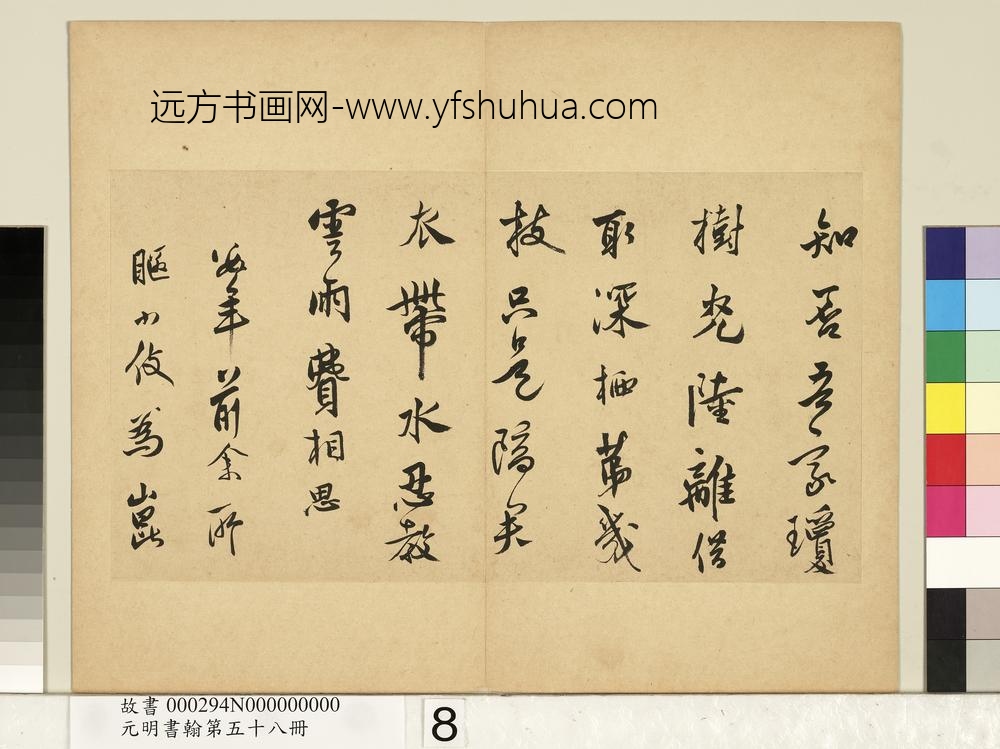 远方书画网-www.yfshuhua.com
知瓊
樹陸離借
耶深栖第幾
枝只是隔
衣帶水忍教
雲雨費相思
年前余所
小伎為崑
故書 000294N000000000
元明書翰第五十八冊
8